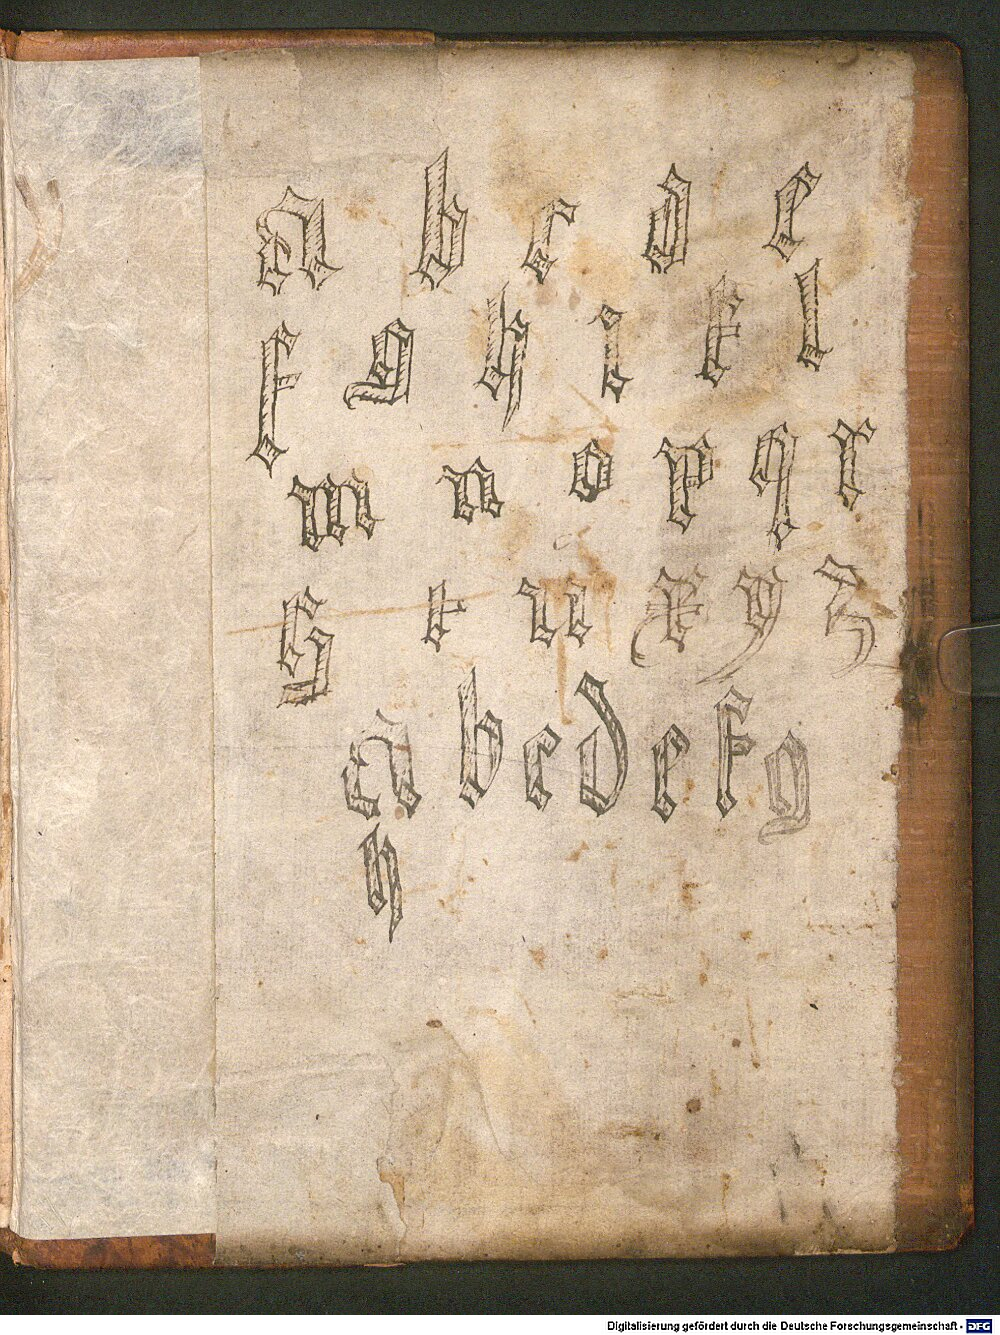 a b c d e
f g h i k l
m n o p q r
s t u x y z
a b c d e f g
h
Digitalisierung gefördert durch die Deutsche Forschungsgemeinschaft - DFG